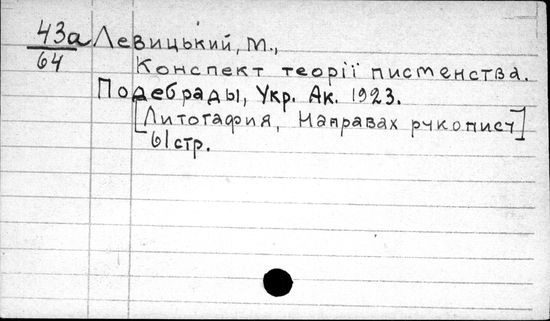 43а Левицький, М.,
64 Конспект теорії писменства.
Подебрады, Укр. Ак. 1923.
[Литография, Направах рукопист]
61 стр.